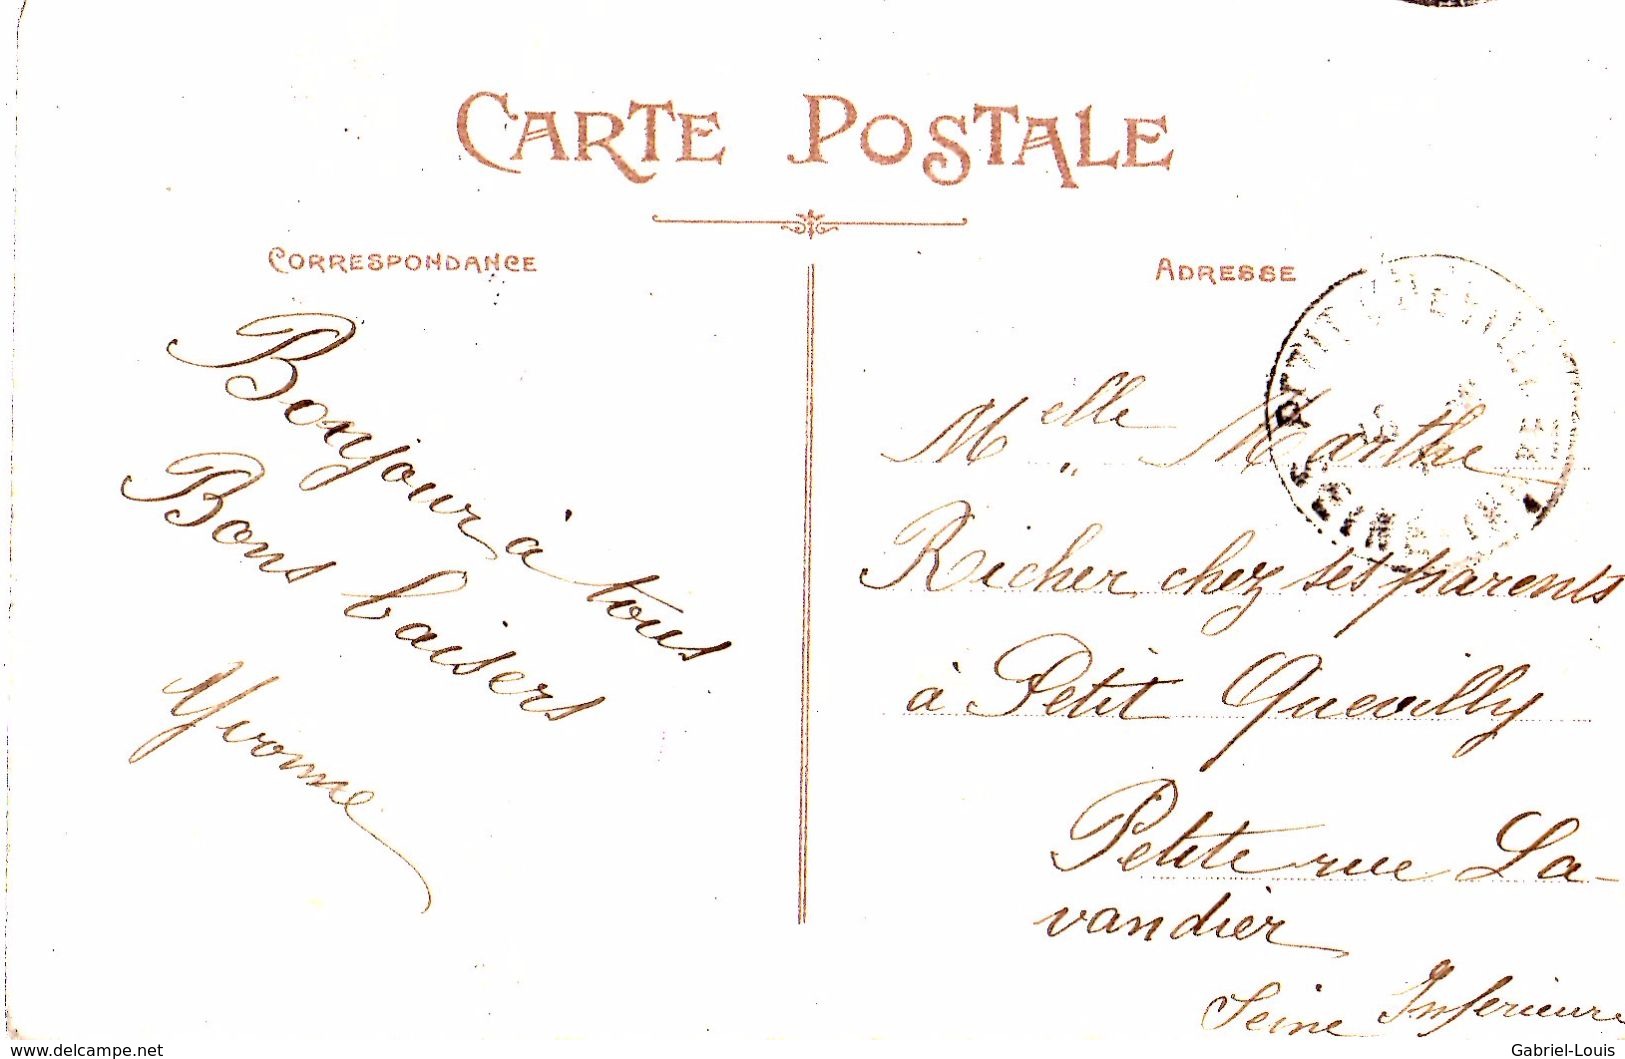 CARTE POSTALE
CORRESPONDANCE
Bonjour à tous
Bons baisers
Yvonne
ADRESSE
Melle Marthe
Richer chez ses parents
à Petit Quevilly
Petite rue La-
vandier
Seine Inférieure
PETIT QUEVILLY
SEINE-INF
www.delcampe.net
Gabriel-Louis